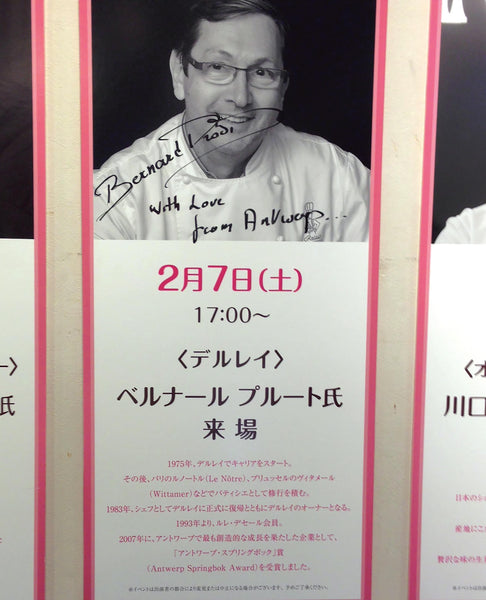 Bernard Proot
With Love
from Antwerp...
2月7日(土)
17:00〜
〈デルレイ〉
ベルナール プルート氏
来 場
1975年、デルレイでキャリアをスタート。
その後、パリのルノートル(Le Nôtre)、ブリュッセルのヴィタメール
(Wittamer)などでパティシエとして修行を積む。
1983年、シェフとしてデルレイに正式に復帰とともにデルレイのオーナーとなる。
1993年より、ルレ・デセール会員。
2007年に、アントワープで最も創造的な成長を果たした企業として、
「アントワープ・スプリングボック」賞
(Antwerp Springbok Award)を受賞しました。
※イベントは出演者の都合により変更または中止になる場合がございます。予めご了承ください。
ー〉
氏
〈オ
川口
日本のシ
産地にこ
贅沢な味の生